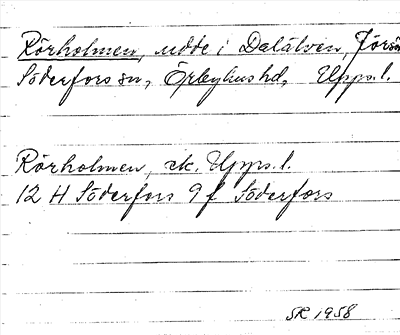 Rörholmen, udde i Dalälven,
Söderfors sn, Örbyhus hd, Upps. l.
Rörholmen, ek. Upps. l.
12 H Söderfors 9 f Söderfors
SR 1958